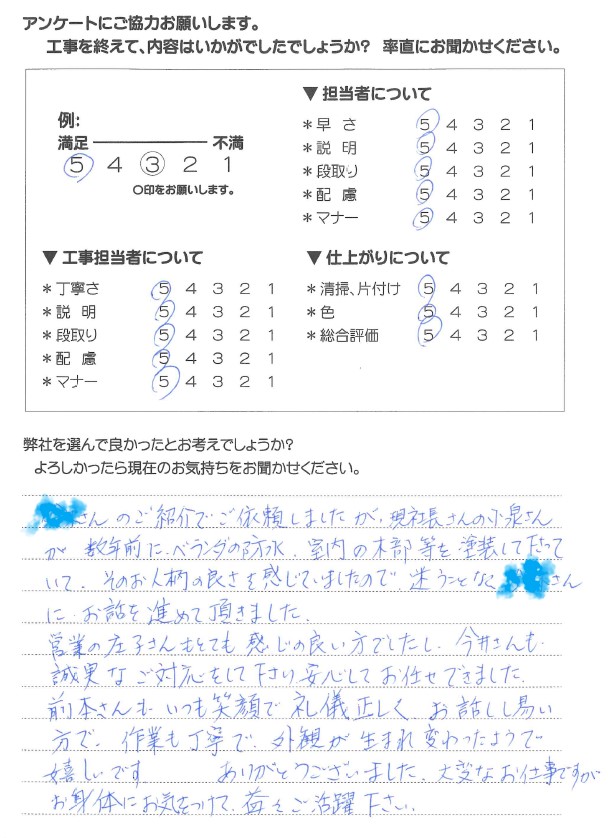 アンケートにご協力お願いします。
工事を終えて、内容はいかがでしたでしょうか? 率直にお聞かせください。
例:
満足 不満
5 4 3 2 1
○印をお願いします。
▼担当者について
*早さ 5 4 3 2 1
*説明 5 4 3 2 1
*段取り 5 4 3 2 1
*配慮 5 4 3 2 1
*マナー 5 4 3 2 1
▼工事担当者について
*丁寧さ 5 4 3 2 1
*説明 5 4 3 2 1
*段取り 5 4 3 2 1
*配慮 5 4 3 2 1
*マナー 5 4 3 2 1
▼仕上がりについて
*清掃、片付け 5 4 3 2 1
*色 5 4 3 2 1
*総合評価 5 4 3 2 1
弊社を選んで良かったとお考えでしょうか?
よろしかったら現在のお気持ちをお聞かせください。
さんのご紹介でご依頼しましたが、現社長さんの小泉さん
が 数年前に、ベランダの防水、室内の木部等を塗装して下さって
いて、そのお人柄の良さを感じていましたので、迷うことなく さん
に お話を進めて頂きました。
営業の庄子さんもとても感じの良い方でしたし、今井さんも
誠実なご対応をして下さり安心してお任せできました。
前本さんも いつも笑顔で 礼儀正しく、お話しし易い
方で、作業も丁寧で、外観が生まれ変わったようで
嬉しいです ありがとうございました。大変なお仕事ですが
お身体にお気をつけて、益々ご活躍下さい。